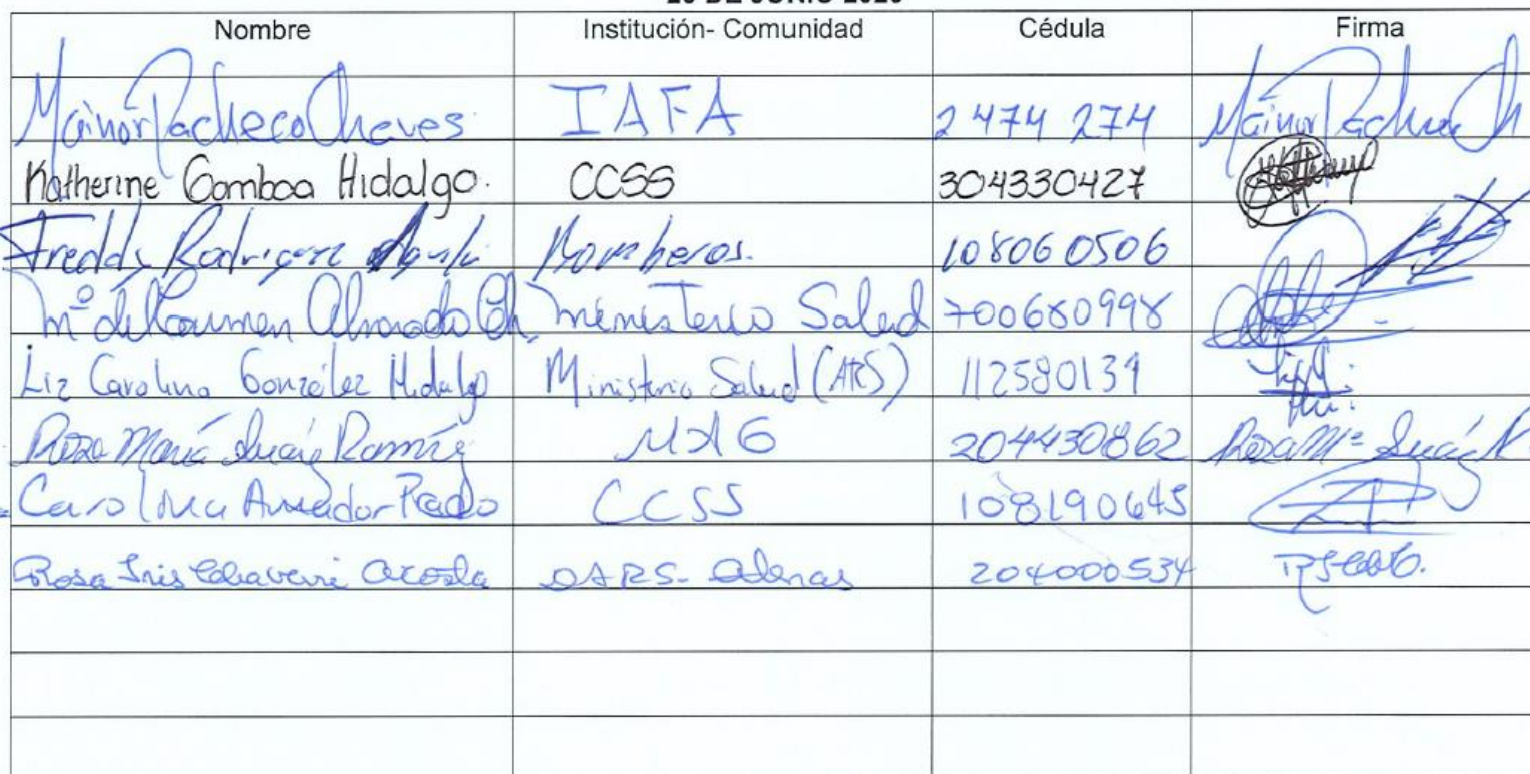 DE JUNIO
Nombre Institución- Comunidad Cédula Firma
Mainor Pacheco Chaves IAFA 2 474 274 Mainor Pacheco Ch
Katherine Gamboa Hidalgo. CCSS 304330427
Freddy Rodríguez Bomberos. 108060506
Mª del Carmen Alvarado Ch, Ministerio Salud 700680998
Liz Carolina González Hidalgo Ministerio Salud (ARS) 112580139
Rosa María Ramírez MAG 204430862 Rosa Mª
Carolina Amador Prado CCSS 108190645
Rosa Iris Chaverri Acosta DARS- Atenas 204000534